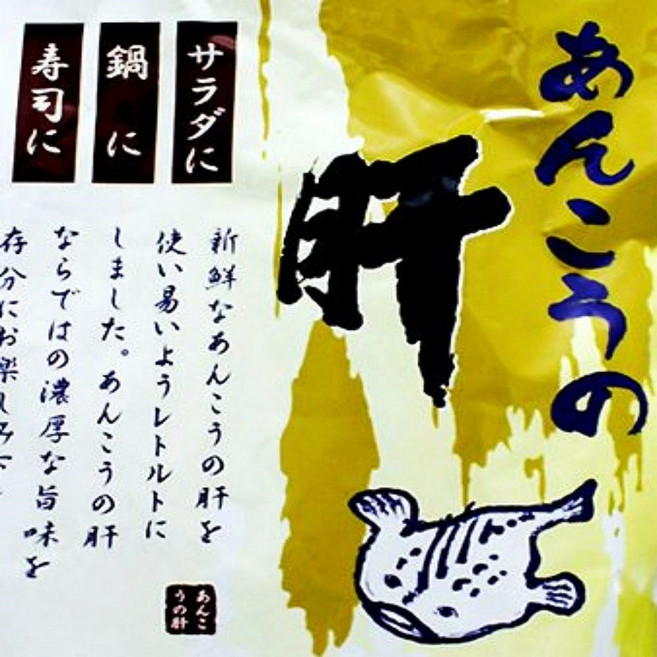 あんこうの
肝
サラダに
鍋に
寿司に
新鮮なあんこうの肝を
使い易いようレトルトに
しました。あんこうの肝
ならではの濃厚な旨味を
存分にお楽しみ
あんこ
うの肝